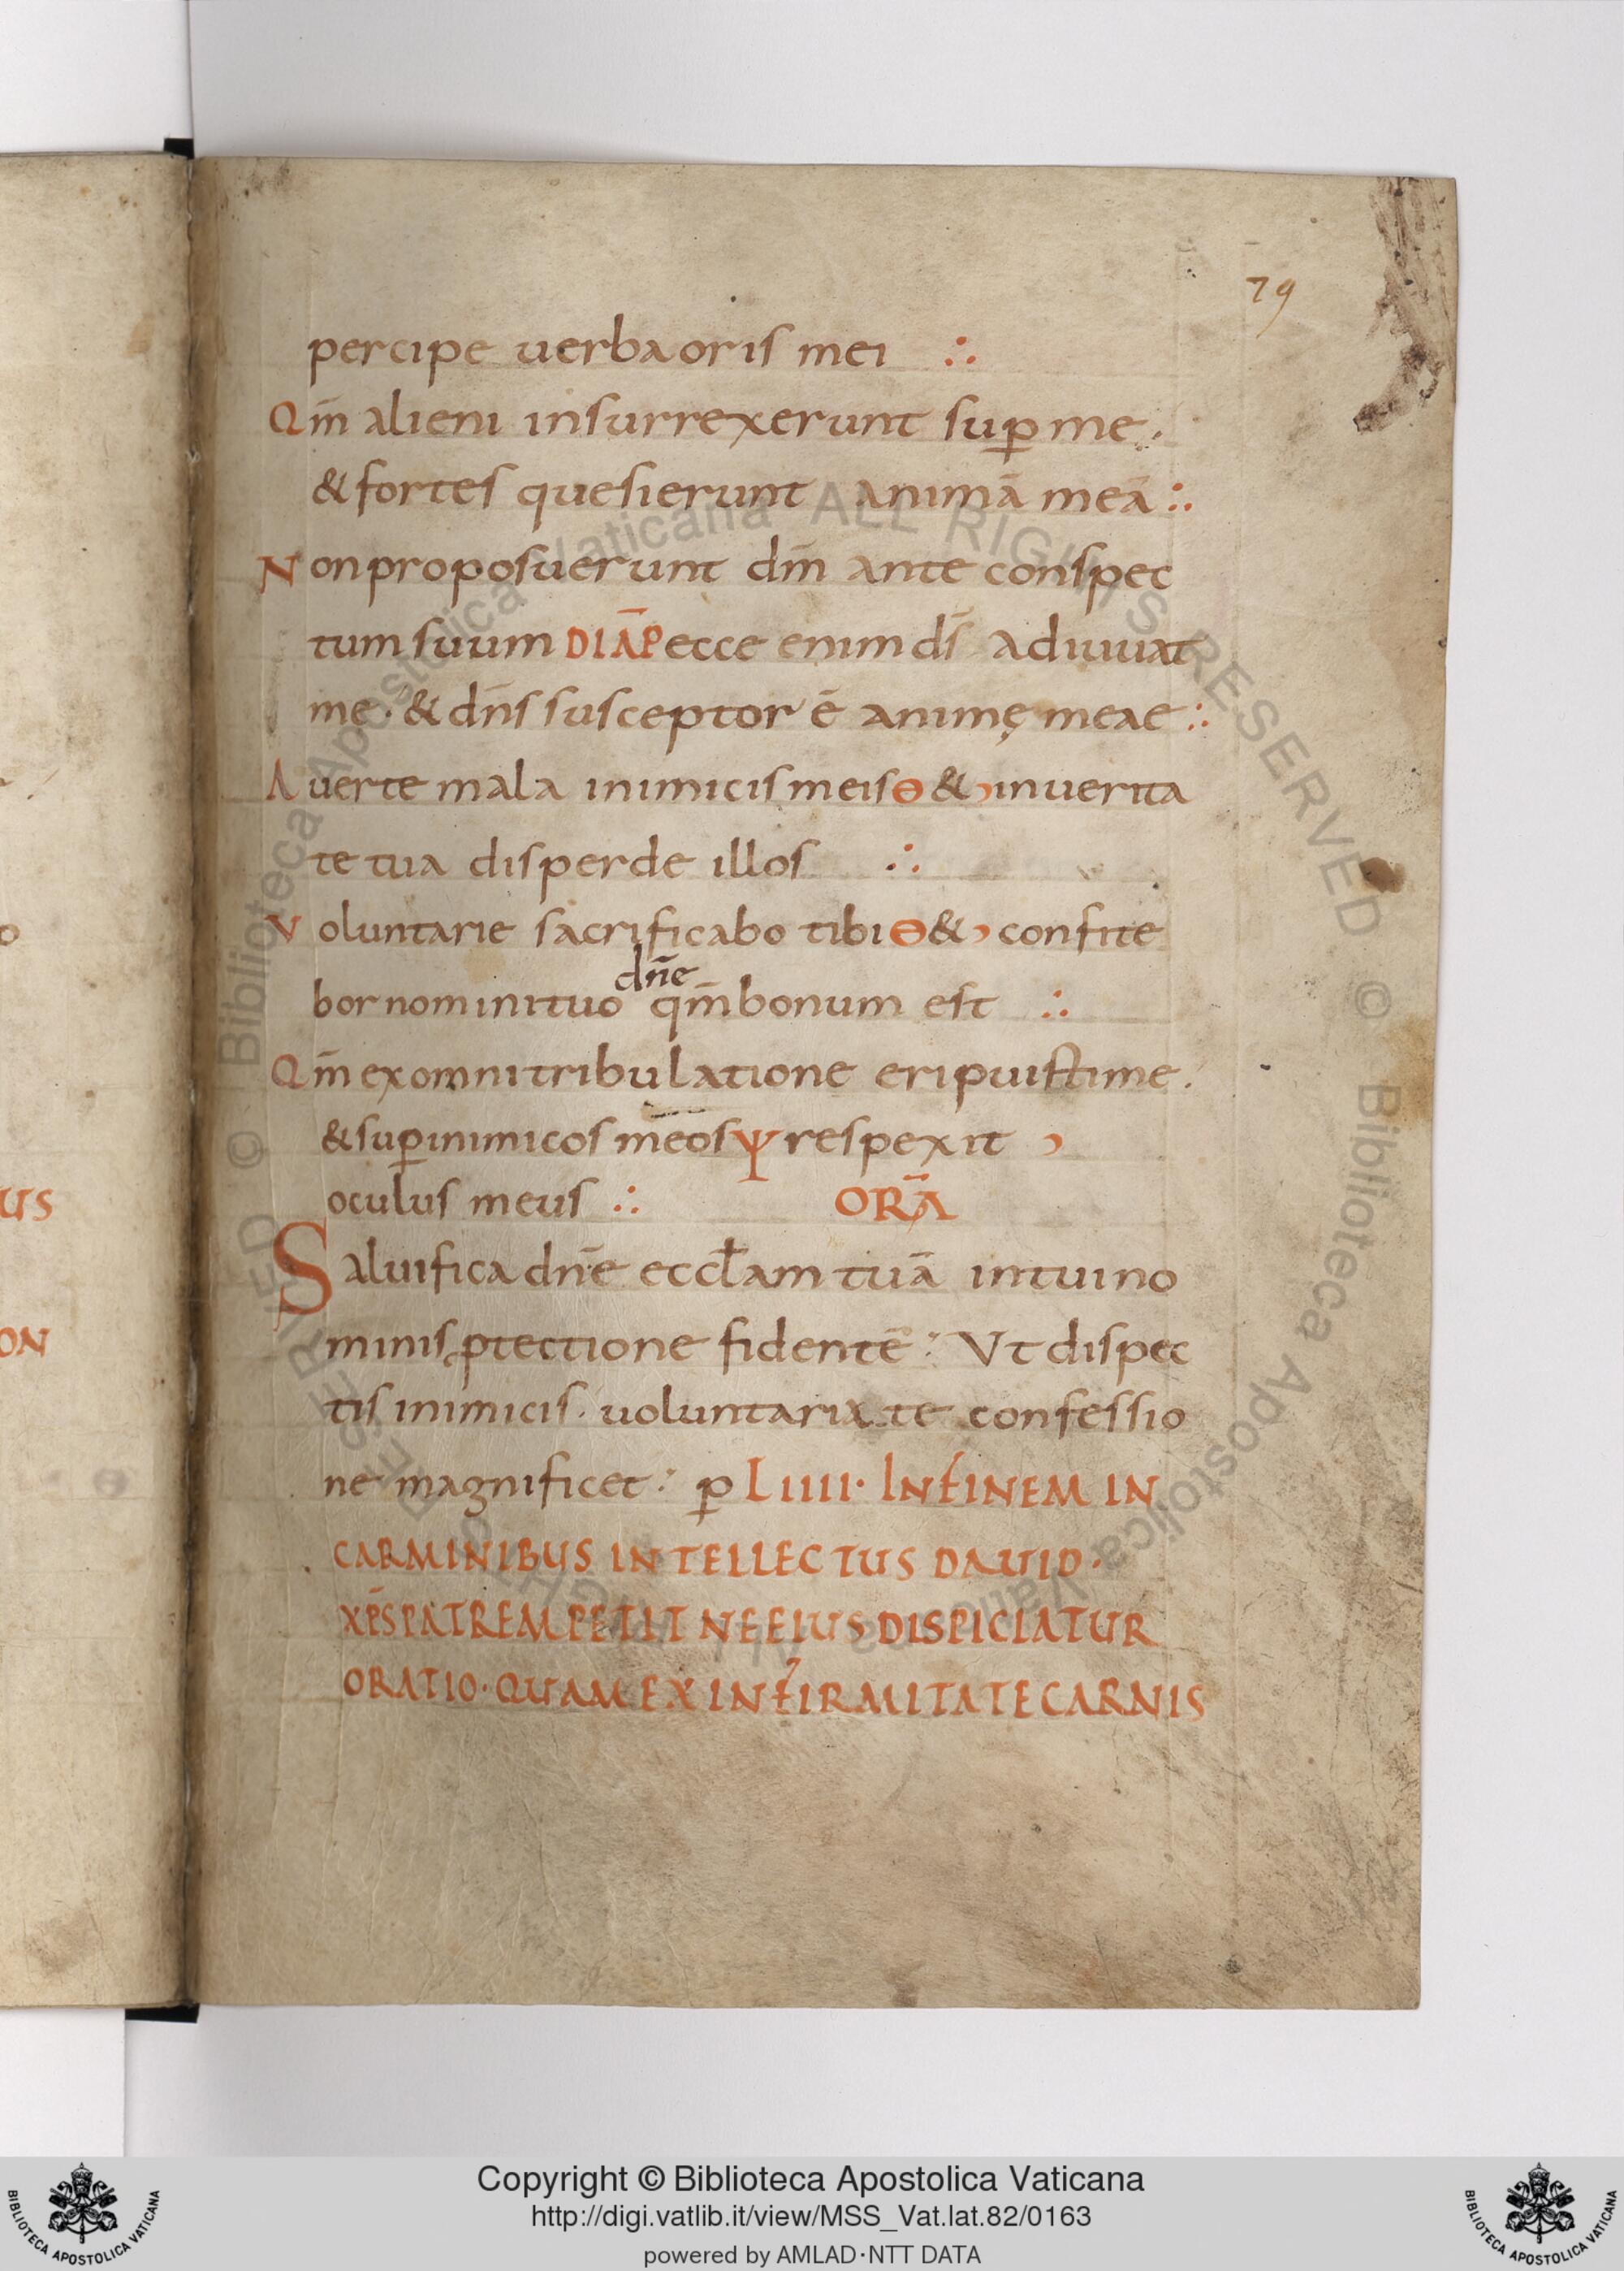 79
percipe uerba oris mei ∴
Qm̄ alieni insurrexerunt suꝑ me.
& fortes quesierunt animā meā ∴
Non proposuerunt dm̄ ante conspec
tum suum DIĀP ecce enim ds̄ adiuuat
me. & dn̄s susceptor ē animę meae ∴
Auerte mala inimicis meis Θ & , inuerita
te tua disperde illos ∴
Voluntarie sacrificabo tibi Θ & , confite
dn̄e
bor nomini tuo qm̄ bonum est ∴
Qm̄ ex omni tribulatione eripuisti me.
& suꝑ inimicos meos Ψ respexit ,
oculus meus ∴ ORĀ
Saluifica dn̄e eccl̄am tuā in tui no
minis ꝓtectione fidentē : Vt dispec
tis inimicis. uoluntaria te confessio
ne magnificet : ꝑ LIIII. IN FINEM IN
CARMINIBUS INTELLECTUS DAUID.
XP̄S PATREM PETIT NE EIUS DISPICIATUR
ORATIO. QUAM EX INFIRMITATE CARNIS
US
ON
© Biblioteca Apostolica Vaticana ALL RIGHTS RESERVED
© Biblioteca Apostolica Vaticana ALL RIGHTS RESERVED
Copyright © Biblioteca Apostolica Vaticana
http://digi.vatlib.it/view/MSS_Vat.lat.82/0163
powered by AMLAD·NTT DATA
BIBLIOTECA APOSTOLICA VATICANA
BIBLIOTECA APOSTOLICA VATICANA